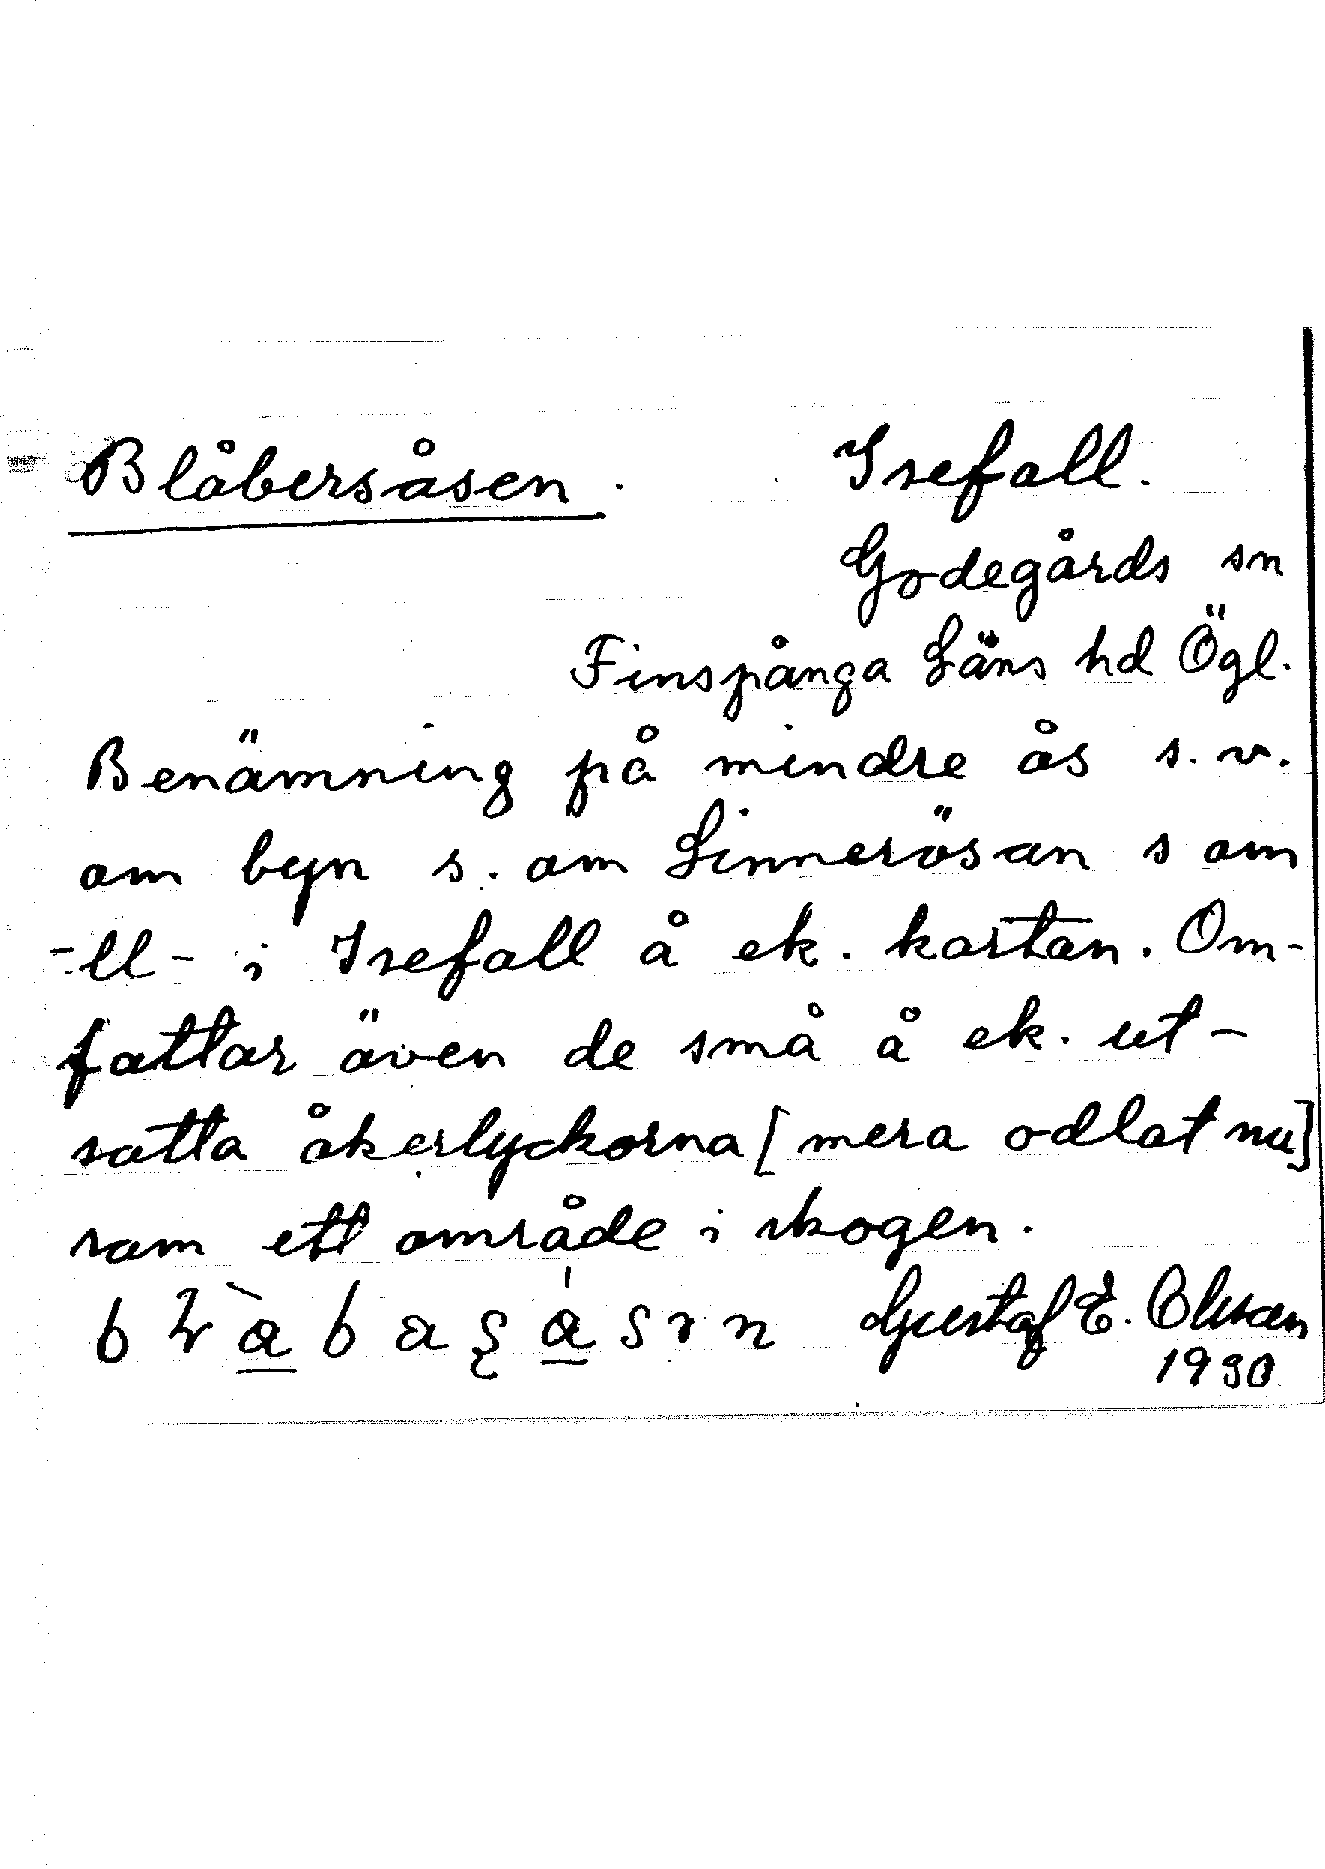 Blåbersåsen. Isefall.
Godegårds sn
Finspånga Läns hd Ögl.
Benämning på mindre ås s.v.
om byn s. om Linnerösan s om
-ll- i Isefall å ek. kartan. Om-
fattar även de små å ek. ut-
satta åkerlyckorna [mera odlat nu]
som ett område i skogen.
Gustaf E. Olsson
1930